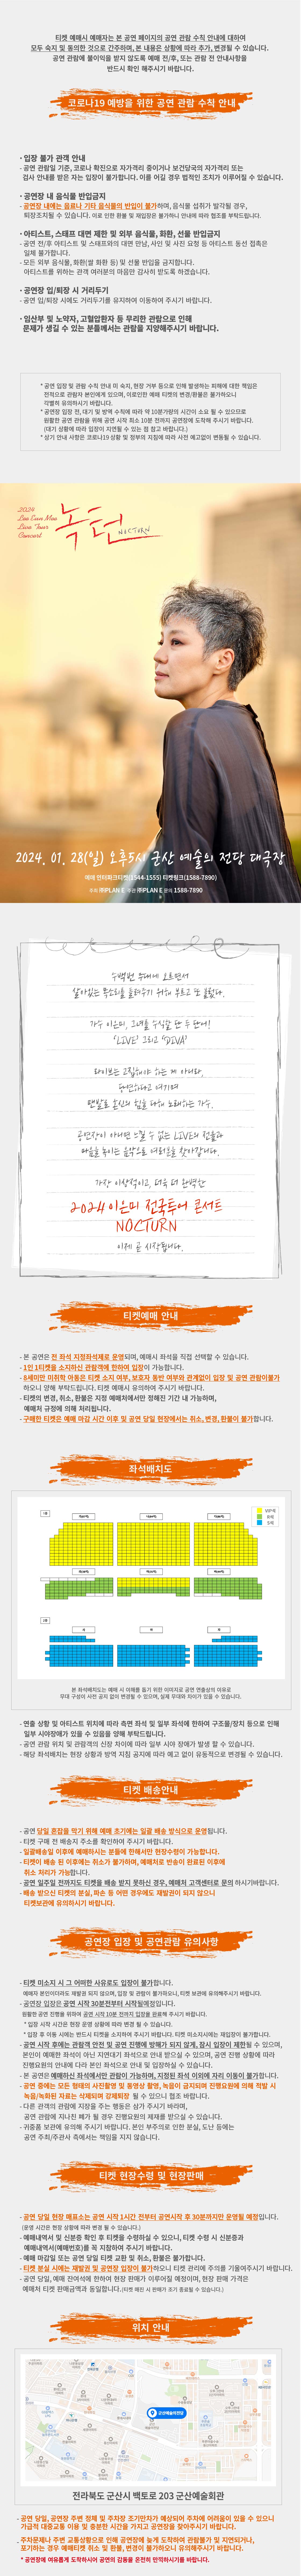 티켓 예매시 예매자는 본 공연 페이지의 공연 관람 수칙 안내에 대하여
모두 숙지 및 동의한 것으로 간주하며, 본 내용은 상황에 따라 추가, 변경될 수 있습니다.
공연 관람에 불이익을 받지 않도록 예매 전/후, 또는 관람 전 안내사항을
반드시 확인 해주시기 바랍니다.
코로나19 예방을 위한 공연 관람 수칙 안내
· 입장 불가 관객 안내
- 공연 관람일 기준, 코로나 확진으로 자가격리 중이거나 보건당국의 자가격리 또는
검사 안내를 받은 자는 입장이 불가합니다. 이를 어길 경우 법적인 조치가 이루어질 수 있습니다.
· 공연장 내 음식물 반입금지
- 공연장 내에는 음료나 기타 음식물의 반입이 불가하며, 음식물 섭취가 발각될 경우,
퇴장조치될 수 있습니다. 이로 인한 환불 및 재입장은 불가하니 안내에 따라 협조를 부탁드립니다.
· 아티스트, 스태프 대면 제한 및 외부 음식물, 화환, 선물 반입금지
- 공연 전/후 아티스트 및 스태프와의 대면 만남, 사인 및 사진 요청 등 아티스트 동선 접촉은
일체 불가합니다.
- 모든 외부 음식물, 화환(쌀 화환 등) 및 선물 반입을 금지합니다.
아티스트를 위하는 관객 여러분의 마음만 감사히 받도록 하겠습니다.
· 공연장 입/퇴장 시 거리두기
- 공연 입/퇴장 시에도 거리두기를 유지하여 이동하여 주시기 바랍니다.
· 임산부 및 노약자, 고혈압환자 등 무리한 관람으로 인해
문제가 생길 수 있는 분들께서는 관람을 지양해주시기 바랍니다.
* 공연 입장 및 관람 수칙 안내 미 숙지, 현장 거부 등으로 인해 발생하는 피해에 대한 책임은
전적으로 관람자 본인에게 있으며, 이로인한 예매 티켓의 변경/환불은 불가하오니
각별히 유의하시기 바랍니다.
* 공연장 입장 전, 대기 및 방역 수칙에 따라 약 10분가량의 시간이 소요 될 수 있으므로
원활한 공연 관람을 위해 공연 시작 최소 10분 전까지 공연장에 도착해 주시기 바랍니다.
(대기 상황에 따라 입장이 지연될 수 있는 점 참고 바랍니다.)
* 상기 안내 사항은 코로나19 상황 및 정부의 지침에 따라 사전 예고없이 변동될 수 있습니다.
2024
Lee Eun Mee
Live Tour
Concert
녹턴
NOCTURN
2024. 01. 28(일) 오후5시 군산 예술의 전당 대극장
예매 인터파크티켓(1544-1555) 티켓링크(1588-7890)
주최 ㈜PLAN E 주관 ㈜PLAN E 문의 1588-7890
수백번 무대에 오르면서
살아있는 목소리를 들려주기 위해 부르고 또 불렀다.
가수 이은미, 그녀를 수식할 단 두 단어!
'LIVE' 그리고 'DIVA'
라이브는 고집해야 하는 게 아니라,
당연하다고 여기며
맨발로 혼신의 힘을 다해 노래하는 가수.
공연장이 아니면 느낄 수 없는 LIVE의 전율과
마음을 녹이는 음악으로 여러분을 찾아갑니다.
가장 이상적이고, 더욱 더 완벽한
2024 이은미 전국투어 콘서트
NOCTURN
이제 곧 시작됩니다.
티켓예매 안내
- 본 공연은 전 좌석 지정좌석제로 운영되며, 예매시 좌석을 직접 선택할 수 있습니다.
- 1인 1티켓을 소지하신 관람객에 한하여 입장이 가능합니다.
- 8세미만 미취학 아동은 티켓 소지 여부, 보호자 동반 여부와 관계없이 입장 및 공연 관람이불가
하오니 양해 부탁드립니다. 티켓 예매시 유의하여 주시기 바랍니다.
- 티켓의 변경, 취소, 환불은 지정 예매처에서만 정해진 기간 내 가능하며,
예매처 규정에 의해 처리됩니다.
- 구매한 티켓은 예매 마감 시간 이후 및 공연 당일 현장에서는 취소, 변경, 환불이 불가합니다.
좌석배치도
VIP석
R석
S석
본 좌석배치도는 예매 시 이해를 돕기 위한 이미지로 공연 연출상의 이유로
무대 구성이 사전 공지 없이 변경될 수 있으며, 실제 무대와 차이가 있을 수 있습니다.
- 연출 상황 및 아티스트 위치에 따라 측면 좌석 및 일부 좌석에 한하여 구조물/장치 등으로 인해
일부 시야장애가 있을 수 있음을 양해 부탁드립니다.
- 공연 관람 위치 및 관람객의 신장 차이에 따라 일부 시야 장애가 발생 할 수 있습니다.
- 해당 좌석배치는 현장 상황과 방역 지침 공지에 따라 예고 없이 유동적으로 변경될 수 있습니다.
티켓 배송안내
- 공연 당일 혼잡을 막기 위해 예매 초기에는 일괄 배송 방식으로 운영됩니다.
- 티켓 구매 전 배송지 주소를 확인하여 주시기 바랍니다.
- 일괄배송일 이후에 예매하시는 분들에 한해서만 현장수령이 가능합니다.
- 티켓이 배송 된 이후에는 취소가 불가하며, 예매처로 반송이 완료된 이후에
취소 처리가 가능합니다.
- 공연 일주일 전까지도 티켓을 배송 받지 못하신 경우, 예매처 고객센터로 문의 하시기바랍니다.
- 배송 받으신 티켓의 분실, 파손 등 어떤 경우에도 재발권이 되지 않으니
티켓보관에 유의하시기 바랍니다.
공연장 입장 및 공연관람 유의사항
- 티켓 미소지 시 그 어떠한 사유로도 입장이 불가합니다.
예매자 본인이더라도 재발권 되지 않으며, 입장 및 관람이 불가하오니, 티켓 보관에 유의해주시기 바랍니다.
- 공연장 입장은 공연 시작 30분전부터 시작될예정입니다.
원활한 공연 진행을 위하여 공연 시작 10분 전까지 입장을 완료해 주시기 바랍니다.
* 입장 시작 시간은 현장 운영 상황에 따라 변경 될 수 있습니다.
* 입장 후 이동 시에는 반드시 티켓을 소지하여 주시기 바랍니다. 티켓 미소지시에는 재입장이 불가합니다.
- 공연 시작 후에는 관람객 안전 및 공연 진행에 방해가 되지 않게, 잠시 입장이 제한될 수 있으며,
본인이 예매한 좌석이 아닌 지연대기 좌석으로 안내 받으실 수 있으며, 공연 진행 상황에 따라
진행요원의 안내에 다라 본인 좌석으로 안내 및 입장하실 수 있습니다.
- 본 공연은 예매하신 좌석에서만 관람이 가능하며, 지정된 좌석 이외에 자리 이동이 불가합니다.
- 공연 중에는 모든 형태의 사진촬영 및 동영상 촬영, 녹음이 금지되며 진행요원에 의해 적발 시
녹음/녹화된 자료는 삭제되며 강제퇴장 될 수 있으니 협조 바랍니다.
- 다른 관객의 관람에 지장을 주는 행동은 삼가 주시기 바라며,
공연 관람에 지나친 폐가 될 경우 진행요원의 제재를 받으실 수 있습니다.
- 귀중품 보관에 유의해 주시기 바랍니다. 본인 부주의로 인한 분실, 도난 등에는
공연 주최/주관사 측에서는 책임을 지지 않습니다.
티켓 현장수령 및 현장판매
- 공연 당일 현장 매표소는 공연 시작 1시간 전부터 공연시작 후 30분까지만 운영될 예정입니다.
(운영 시간은 현장 상황에 따라 변경 될 수 있습니다.)
- 예매내역서 및 신분증 확인 후 티켓을 수령하실 수 있으니, 티켓 수령 시 신분증과
예매내역서(예매번호)를 꼭 지참하여 주시기 바랍니다.
- 예매 마감일 또는 공연 당일 티켓 교환 및 취소, 환불은 불가합니다.
- 티켓 분실 시에는 재발권 및 공연장 입장이 불가하오니 티켓 관리에 주의를 기울여주시기 바랍니다.
- 공연 당일, 예매 잔여석에 한하여 현장 판매가 이루어질 예정이며, 현장 판매 가격은
예매처 티켓 판매금액과 동일합니다. (티켓 매진 시 판매가 조기 종료될 수 있습니다.)
위치 안내
군산예술의전당
전라북도 군산시 백토로 203 군산예술회관
- 공연 당일, 공연장 주변 정체 및 주차장 조기만차가 예상되어 주차에 어려움이 있을 수 있으니
가급적 대중교통 이용 및 충분한 시간을 가지고 공연장을 찾아주시기 바랍니다.
- 주차문제나 주변 교통상황으로 인해 공연장에 늦게 도착하여 관람불가 및 지연되거나,
포기하는 경우 예매티켓 취소 및 환불, 변경이 불가하오니 유의해주시기 바랍니다.
* 공연장에 여유롭게 도착하시어 공연의 감동을 온전히 만끽하시기를 바랍니다.